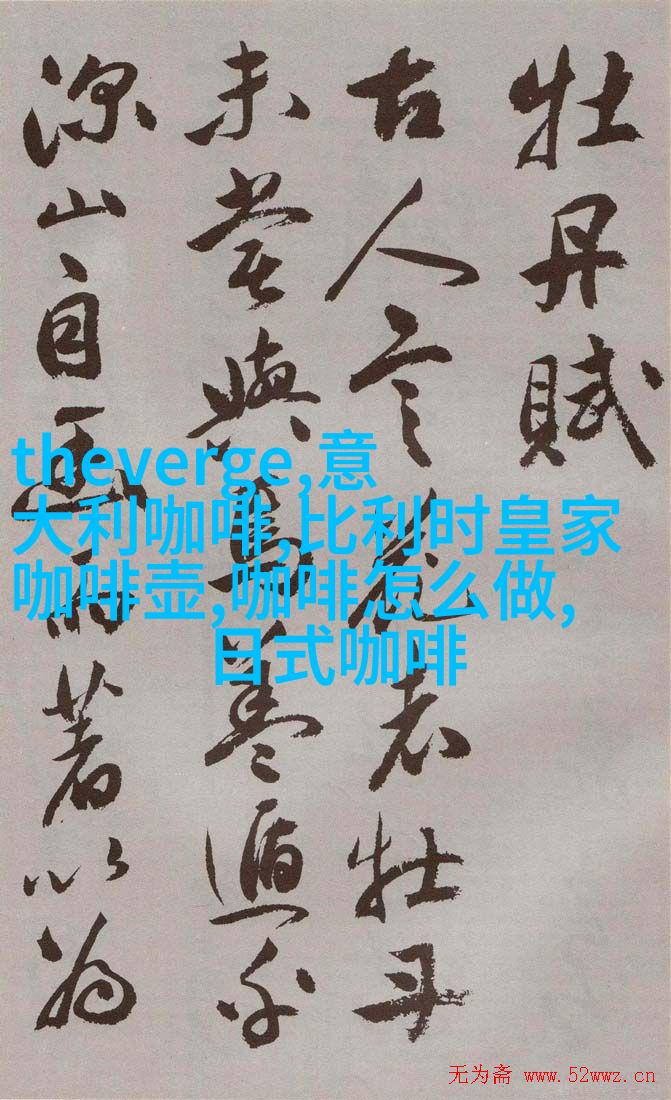 牡丹賦
古人言花者牡丹
未嘗與焉蓋遁乎
深山自幽而著以為
theverge,意
大利咖啡,比利时皇家
咖啡壶,咖啡怎么做,
日式咖啡
无为斋 www.52wwz.cn